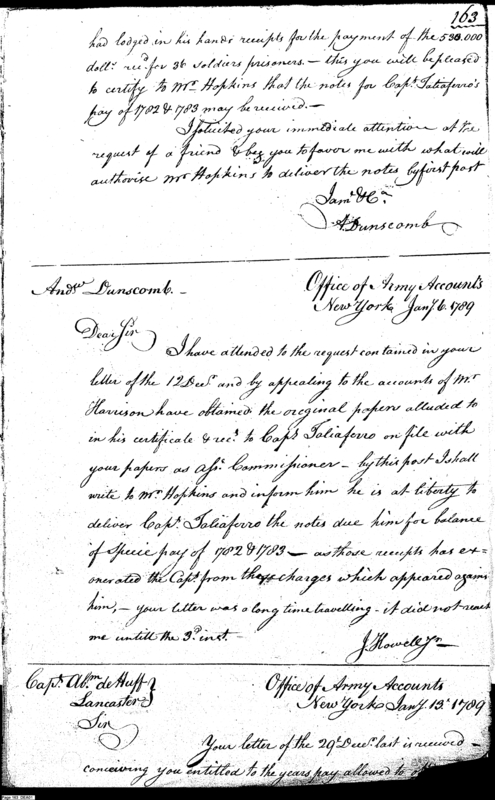 163
had lodged in his hands receipts for the payment of the 530.000
dollrs. recd. for 36 soldiers prisoners. – this you will be pleased
to certify to Mr. Hopkins that the notes for Capt. Taliaferro's
pay of 1782 & 1783 may be received. –
I solicited your immediate attention at the
request of a friend & beg you to favor me with what will
authorise Mr. Hopkins to deliver the notes by first post
I am &ca.
A. Dunscomb
Andw. Dunscomb. –
Office of Army Accounts
New York Jany. 6. 1789
Dear Sir
I have attended to the request contained in your
letter of the 12 Decr. and by appealing to the accounts of Mr.
Harrison have obtained the original papers alluded to
in his certificate & rect. to Capt. Taliaferro on file with
your papers as Asst. Commissioner – by this post I shall
write to Mr. Hopkins and inform him he is at liberty to
deliver Capt. Taliaferro the notes due him for balance
of Specie pay of 1782 & 1783 – as those receipts has ex=
onerated the Capt. from the charges which appeared against
him, – your letter was a long time travelling – it did not reach
me untill the 3d. inst. –
J. Howell Jr.
Capt. Abm. de Huff
Lancaster
Office of Army Accounts
New York Jany. 13. 1789
Sir
Your letter of the 29th. Decr. last is received –
conceiving you entitled to the years pay allowed to